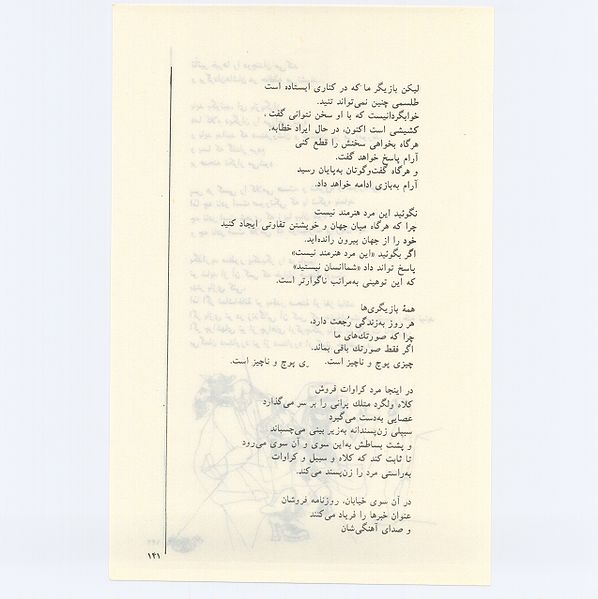 لیکن بازیگر ما که در کناری ایستاده است
طلسمی چنین نمی‌تواند تنید.
خوابگردانیست که با او سخن نتوانی گفت.
کشیشی است اکنون، در حال ایراد خطابه.
هرگاه بخواهی سخنش را قطع کنی
آرام پاسخ خواهد گفت.
و هرگاه گفت‌وگوتان به‌پایان رسید
آرام به‌بازی ادامه خواهد داد.
نگوئید این مرد هنرمند نیست
چرا که هرگاه میان جهان و خویشتن تفاوتی ایجاد کنید
خود را از جهان بیرون رانده‌اید.
اگر بگوئید «این مرد هنرمند نیست»
پاسخ تواند داد «شماانسان نیستید»
که این توهینی به‌مراتب ناگوارتر است.
همهٔ بازیگری‌ها
هر روز به‌زندگی رُجعت دارد،
چرا که صورتك‌های ما
اگر فقط صورتك باقی بماند،
چیزی پوچ و ناچیز است. ی پوچ و ناچیز است.
در اینجا مرد کراوات فروش
کلاه ولگرد متلك پرانی را بر سر می‌گذارد
عصایی به‌دست می‌گیرد
سبیلی زن‌پسندانه به‌زیر بینی می‌چسباند
و پشت بساطش به‌این سوی و آن سوی می‌رود
تا ثابت کند که کلاه و سبیل و کراوات
به‌راستی مرد را زن‌پسند می‌کند.
در آن سوی خیابان، روزنامه فروشان
عنوان خبرها را فریاد می‌کنند
و صدای آهنگی‌شان
۱۴۱